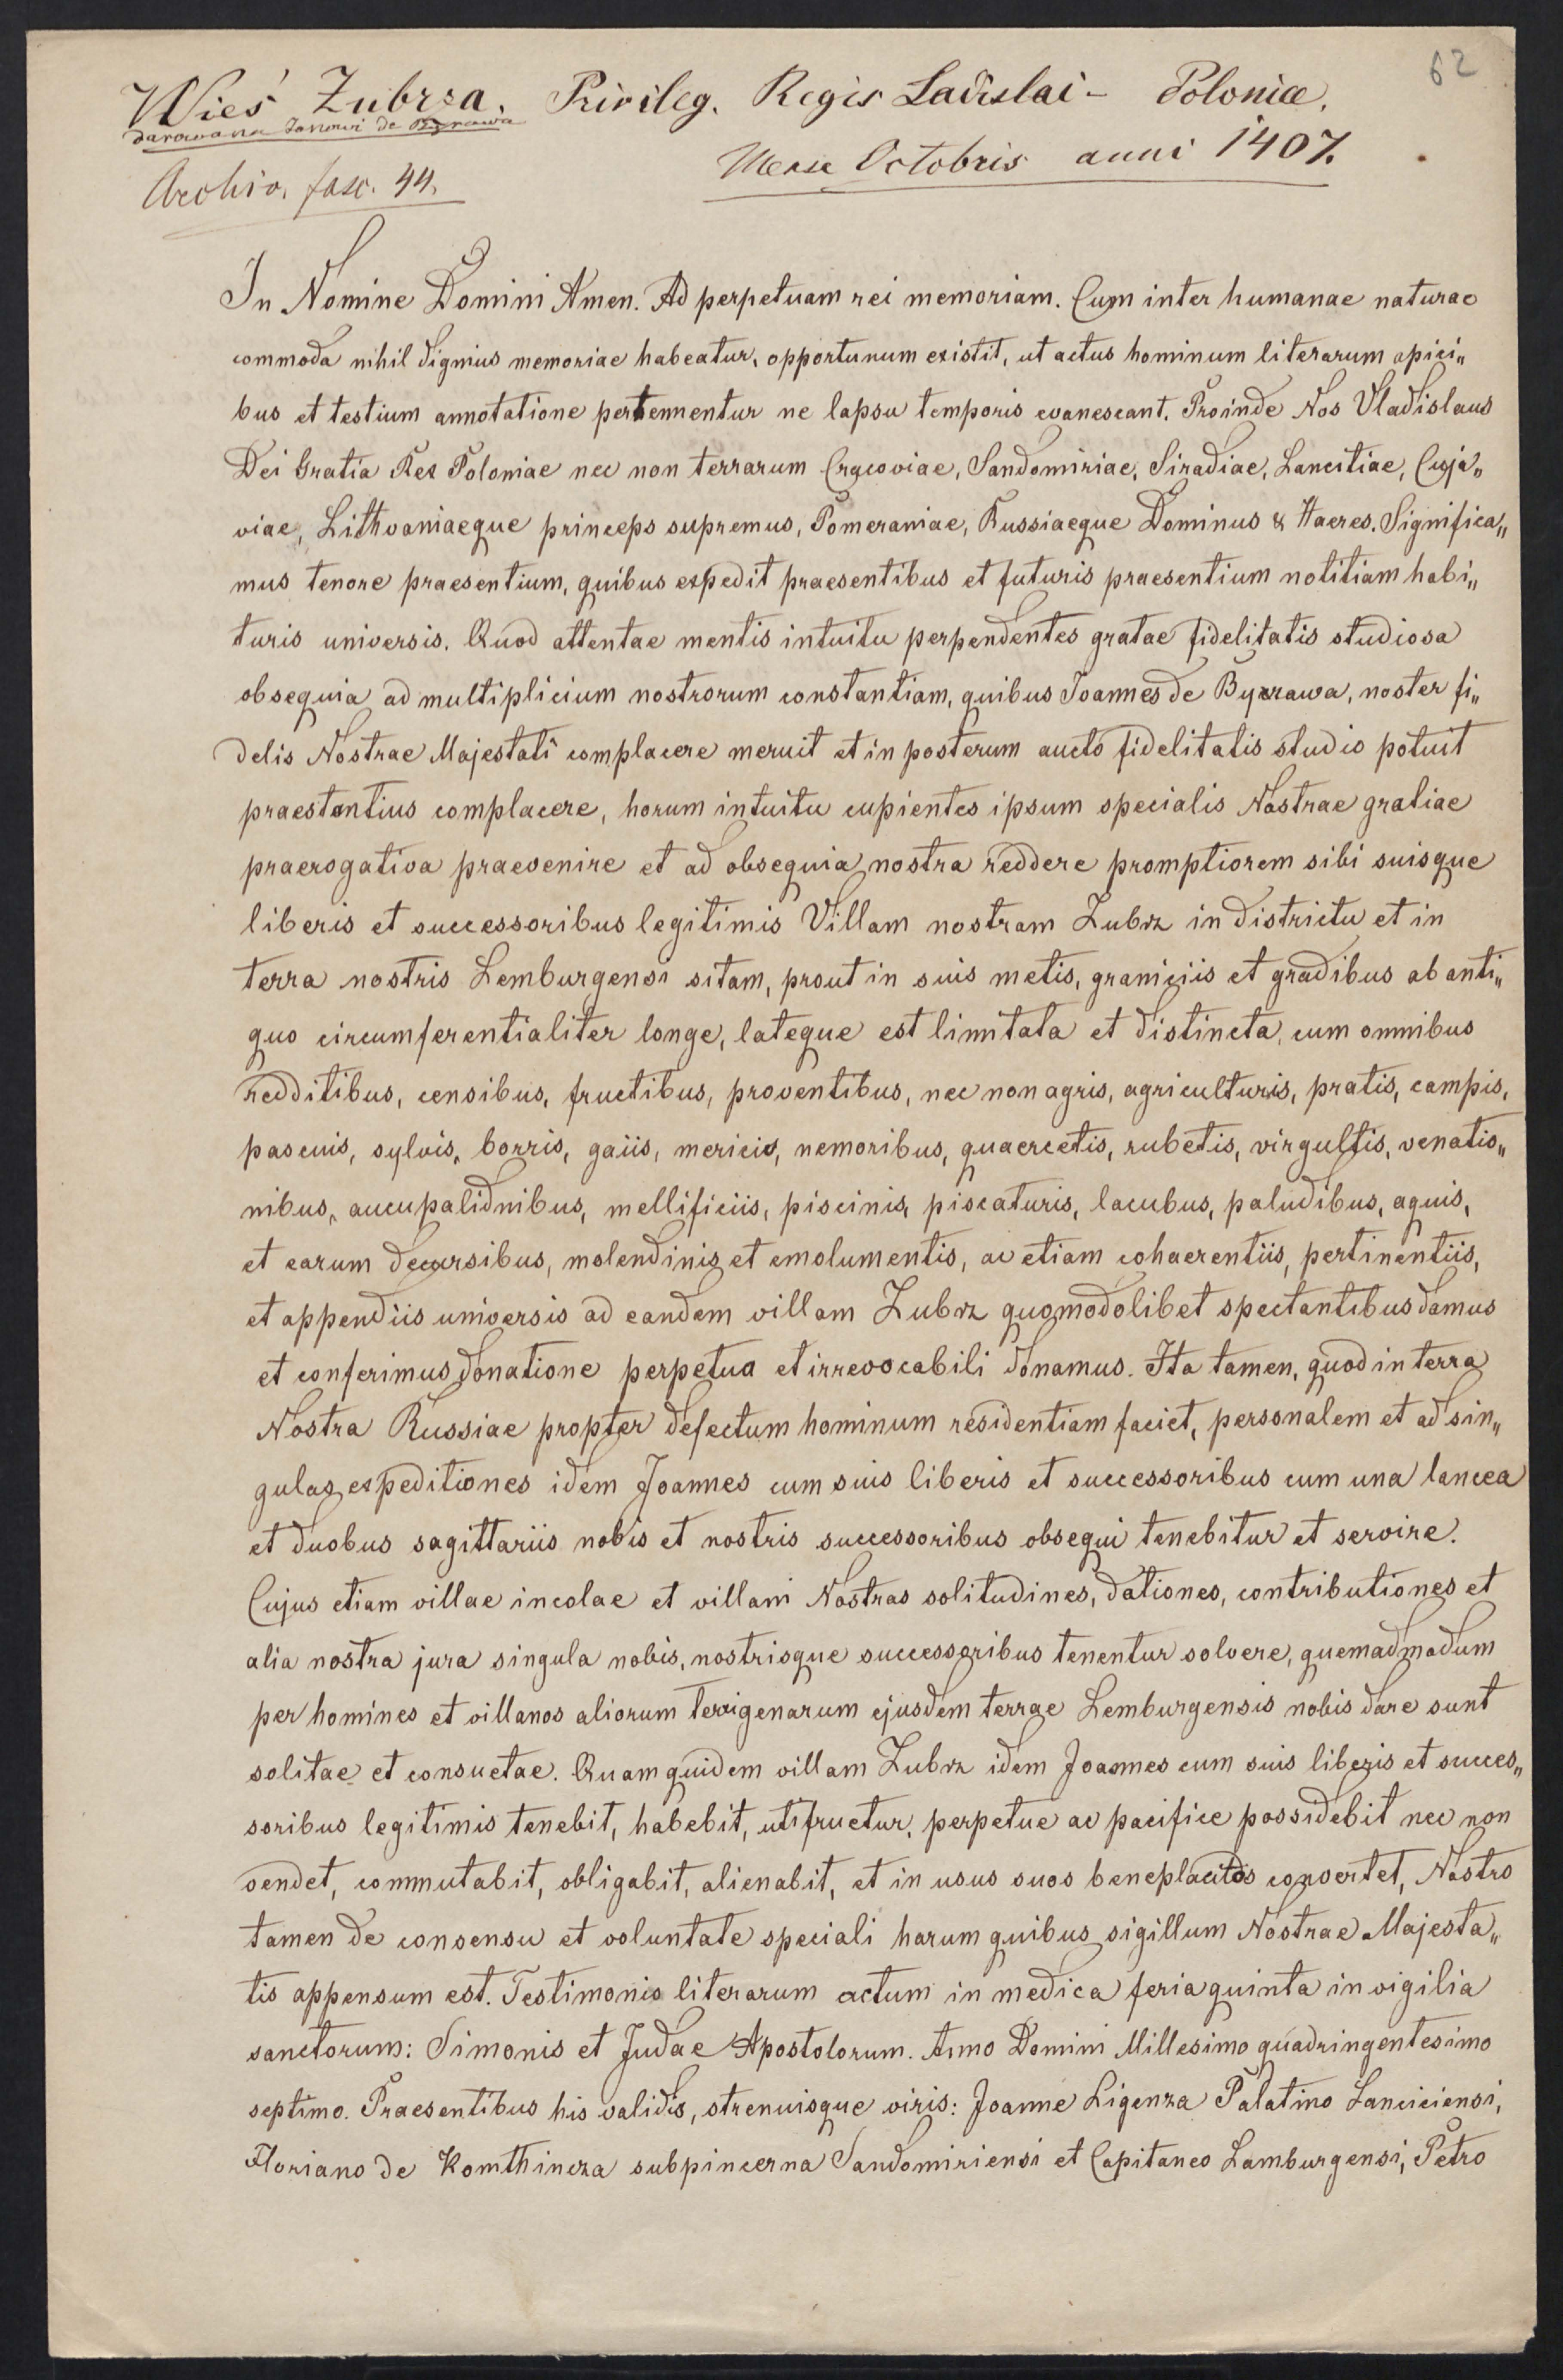 62
Wieś Zubrza. Privileg. Regis Ladislai - Poloniæ.
darowana Janowi de Byrawa
Mense Octobris anni 1407.
Archiv. fasc. 44.
In Nomine Domini Amen. Ad perpetuam rei memoriam. Cum inter humanae naturae
commoda nihil dignius memoriae habeatur, opportunum existit, ut actus hominum literarum apici„
bus et testium annotatione pertennentur ne lapsu temporis evanescant. Proinde Nos Vladislaus
Dei Gratia Rex Poloniae nec non terrarum Cracoviae, Sandomiriae, Siradiae, Lancitiae, Cuja„
viae, Lithvaniaeque princeps supremus, Pomeraniae, Russiaeque Dominus & Haeres. Significa„
mus tenore praesentium, quibus expedit praesentibus et futuris praesentium notitiam habi„
turis universis. Quod attentae mentis intuitu perpendentes gratae fidelitatis studiosa
obsequia ad multiplicium nostrorum constantiam, quibus Joannes de Byrawa, noster fi„
delis Nostrae Majestati complacere meruit et in posterum aucto fidelitatis studio potuit
praestantius complacere, horum intuitu cupientes ipsum specialis Nostrae gratiae
praerogativa praevenire et ad obsequia nostra reddere promptiorem sibi suisque
liberis et successoribus legitimis Villam nostram Zubrz in districtu et in
terra nostris Lemburgensi sitam, prout in suis metis, graniciis et gradibus ab anti„
quo circumferentialiter longe, lateque est limitata et distincta, cum omnibus
redditibus, censibus, fructibus, proventibus, nec non agris, agriculturis, pratis, campis,
pascuis, sylvis, borris, gaiis, mericis, nemoribus, quaercetis, rubetis, virgultis, venatio„
nibus, aucupalidnibus, mellificiis, piscinis, piscaturis, lacubus, paludibus, aquis,
et earum decursibus, molendinis et emolumentis, ac etiam cohaerentiis, pertinentiis,
et appendiis universis ad eandem villam Zubrz quomodolibet spectantibus damus
et conferimus donatione perpetua et irrevocabili donamus. Ita tamen, quod in terra
Nostra Russiae propter defectum hominum residentiam faciet, personalem et ad sin„
gulas expeditiones idem Joannes cum suis liberis et successoribus cum una lancea
et duobus sagittariis nobis et nostris successoribus obsequi tenebitur et servire.
Cujus etiam villae incolae et villani Nostras solitudines, dationes, contributiones et
alia nostra jura singula nobis, nostrisque successoribus tenentur solvere, quemadmodum
per homines et villanos aliorum terrigenarum ejusdem terrae Lemburgensis nobis dare sunt
solitae et consuetae. Quam quidem villam Zubrz idem Joannes cum suis liberis et succes„
soribus legitimis tenebit, habebit, utifruetur, perpetue ac pacifice possidebit nec non
vendet, commutabit, obligabit, alienabit, et in usus suos beneplacitos convertet, Nostro
tamen de consensu et voluntate speciali harum quibus sigillum Nostrae Majesta„
tis appensum est. Testimonio literarum actum in medica feria quinta in vigilia
sanctorum: Simonis et Judae Apostolorum. Anno Domini Millesimo quadringentesimo
septimo. Praesentibus his validis, strenuisque viris: Joanne Ligenza Palatino Lanciciensi,
Floriano de Komthincza subpincerna Sandomiriensi et Capitaneo Lamburgensi, Petro